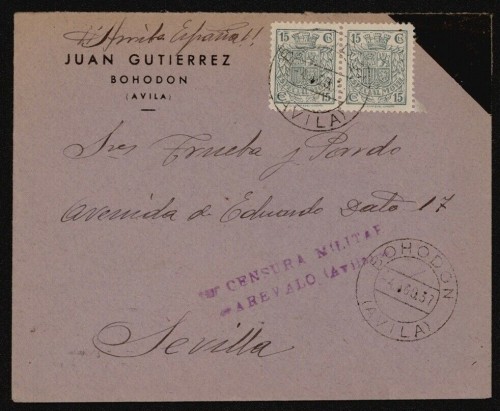 ¡¡Arriba España!!
JUAN GUTIÉRREZ
BOHODON
(AVILA)
15 Cs 15 Cs
15 15
(AVILA)
Sres Trueba y Pardo
Avenida de Eduardo Dato 17
CENSURA MILITAR
AREVALO (Avila)
BOHODON
(AVILA)
Sevilla